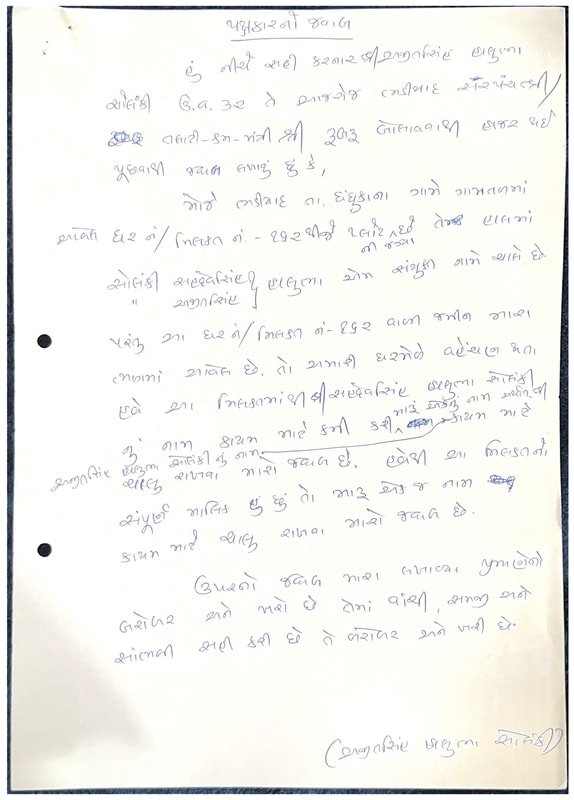 પક્ષકારનો જવાબ
હું નીચે સહી કરનાર શ્રી અજીતસિંહ હાલુભા
સોલંકી ઉ.વ. ૩૨ તે આજરોજ ભડીયાદ સરપંચશ્રી/
તલાટી-કમ-મંત્રી શ્રી રૂબરૂ બોલાવવાથી હાજર થઈ
પૂછવાથી જવાબ લખાવું છું કે,
મોજે ભડીયાદ તા. ધંધુકાના ગામે ગામતળમાં
આવેલ ઘર નં/મિલકત નં.-૧૬૨ થીજે પ્લોટ ની જગ્યા તે હાલમાં
સોલંકી સહદેવસિંહ હાલુભા એમ સંયુક્ત નામે ચાલે છે
" અજીતસિંહ
પરંતુ આ ઘર નં/મિલકત નં-૧૬૨ વાળી જમીન મારા
ભાગમાં આવેલ છે. તો અમારી ઘરમેળે વહેંચણ થતા
હવે આ મિલકતમાંથી શ્રી સહદેવસિંહ હાલુભા સોલંકી
નું નામ કાયમ માટે કમી કરી મારું એકનું નામ કાયમ માટે
અજીતસિંહ હાલુભા સોલંકી નું નામ
ચાલુ રાખવા મારો જવાબ છે. હવેથી આ મિલકતનો
સંપૂર્ણ માલિક હું છું તો મારૂ એક જ નામ
કાયમ માટે ચાલુ રાખવા મારો જવાબ છે.
ઉપરનો જવાબ મારા લખાવ્યા પ્રમાણેનો
બરોબર અને ખરો છે તેમાં વાંચી, સમજી અને
સાંભળી સહી કરી છે તે બરોબર અને ખરી છે.
(અજીતસિંહ હાલુભા સોલંકી)